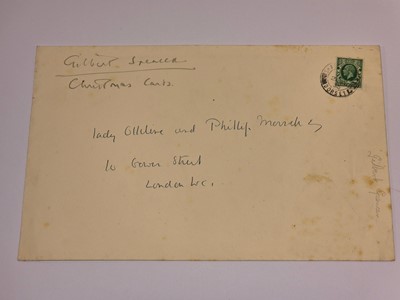 Gilbert Spencer
Christmas Card.
Lady Ottoline and Phillip Morrell
10 Gower Street
London W.C.